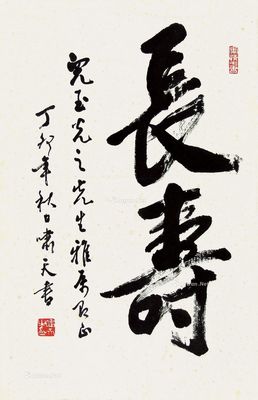 長壽
兒玉光之先生雅属即正
丁卯年秋日啸天書